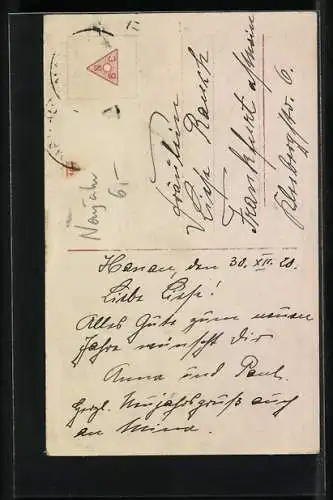 Fräulein
Liese Rauch
Frankfurt a/Main
Neujahr
6,-
Hanau, den 30. XII. 20.
Liebe Liese!
Alles Gute zum neuen
Jahre wünscht dir
Anna und Paul.
Herzl. Neujahrsgruß auch
an Mina.